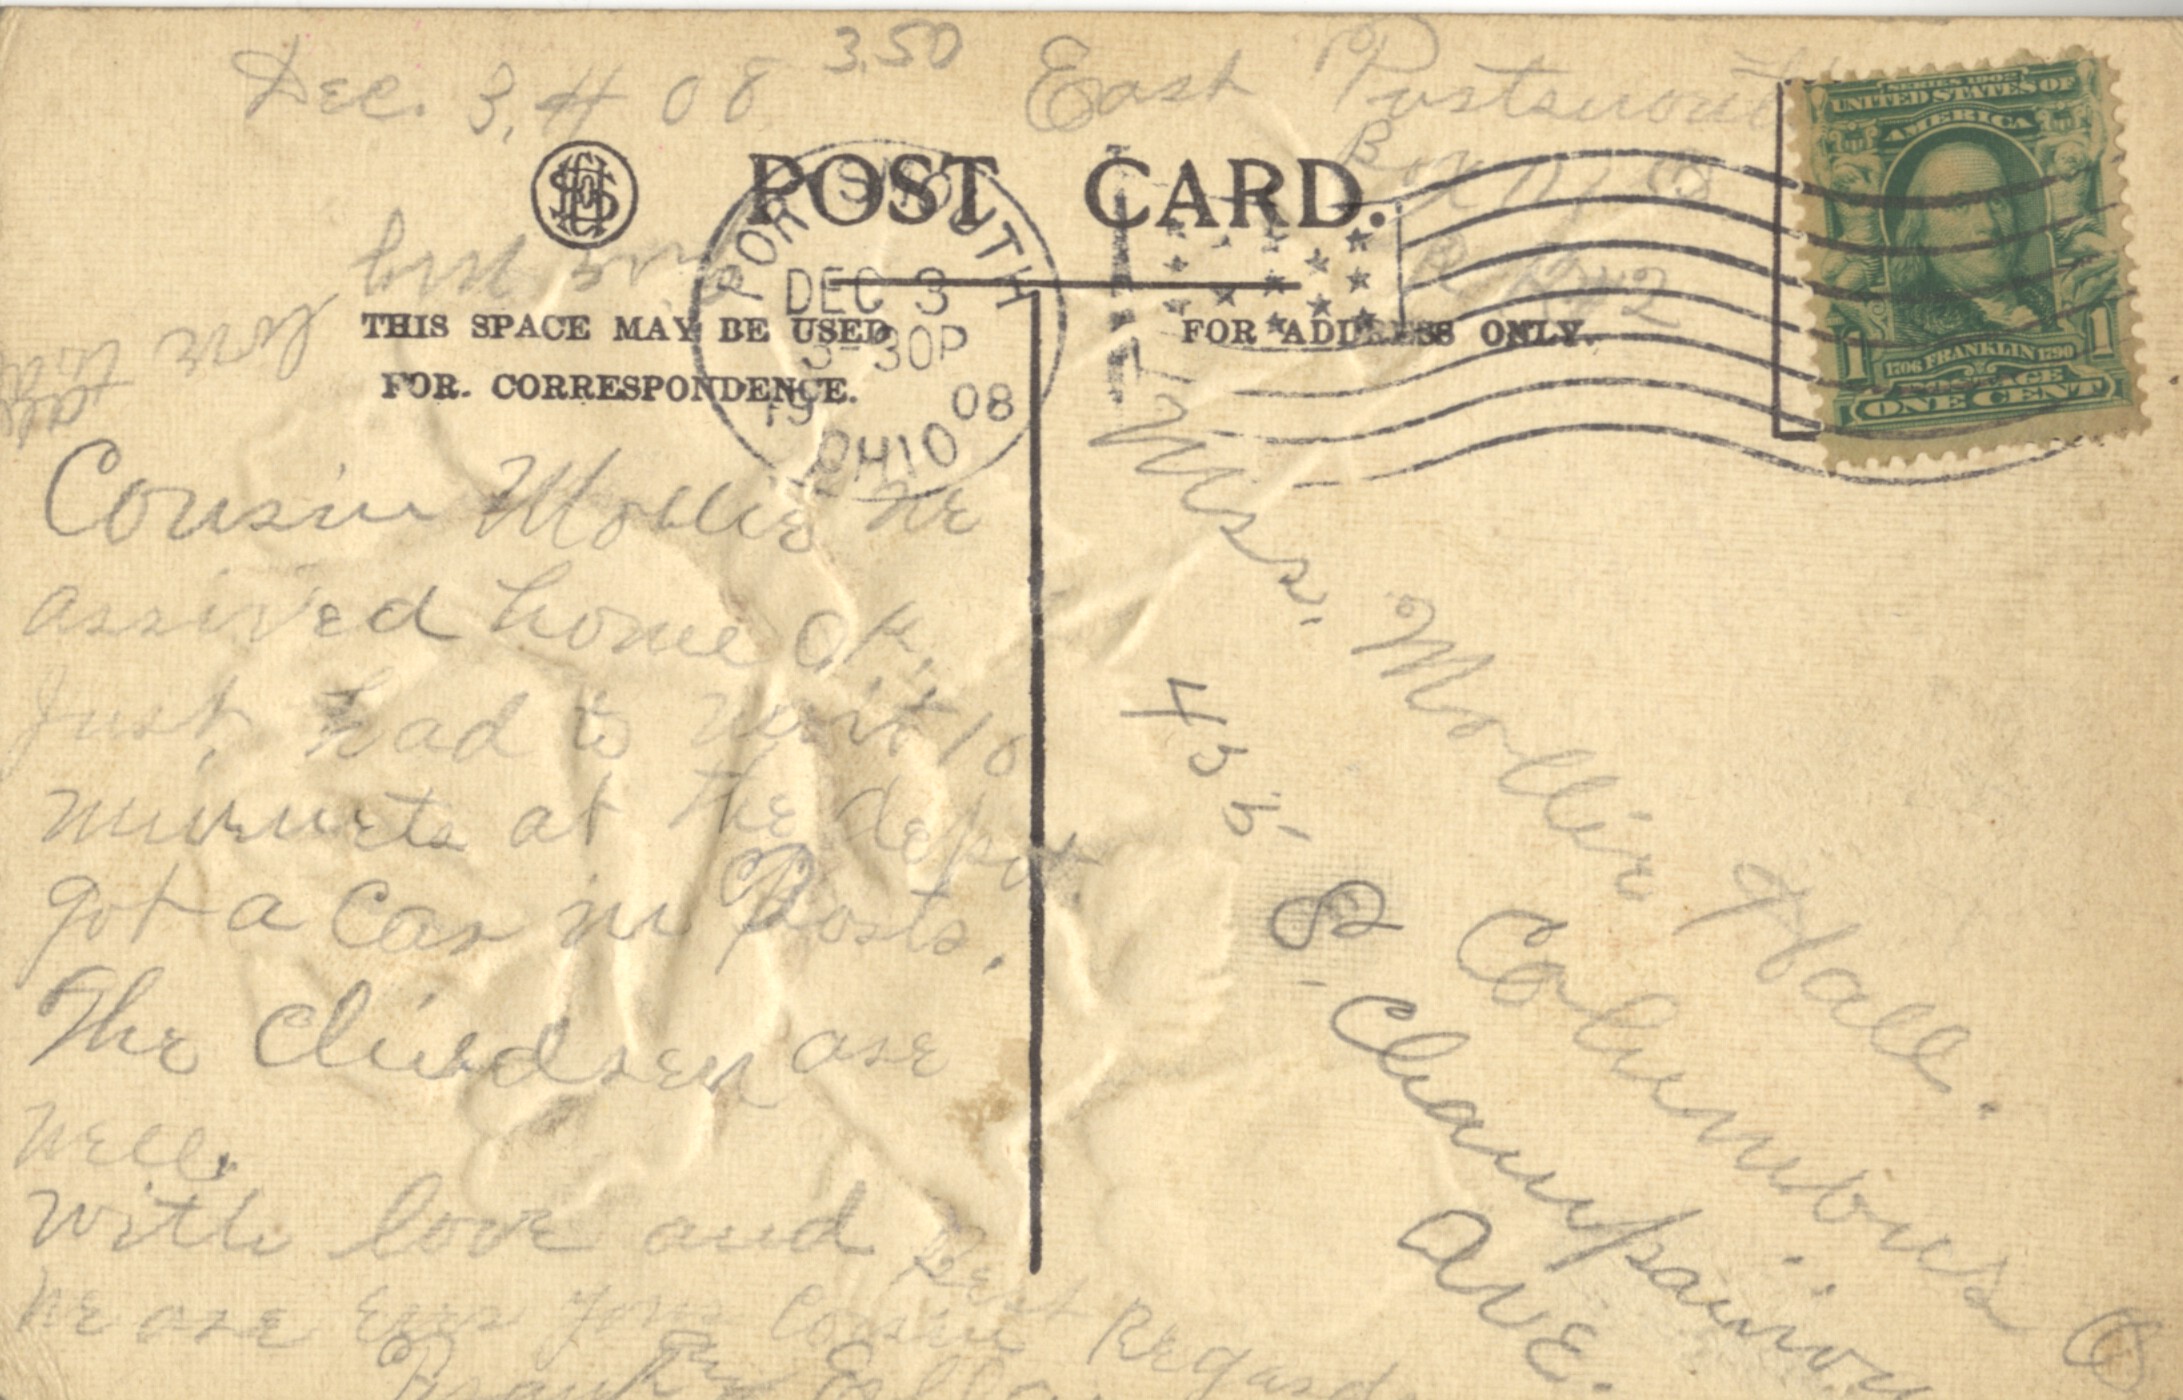 Dec. 3, 08 3.50 East
Box
POST CARD.
PORTSMOUTH
DEC 3
3-30P
1908
OHIO
SERIES 1902
UNITED STATES OF
AMERICA
1706 FRANKLIN 1790
POSTAGE
1 1
ONE CENT
THIS SPACE MAY BE USED
FOR CORRESPONDENCE.
FOR ADDRESS ONLY.
love
Cousin Mollie we
arrived home O.K.
Just had to wait 10
at the depot
got a Car in Ports.
The are
well.
With love and Best Regards
we are Ever your Cousin
Mrs. Mollie Hall.
Columbus O
455 S. Champaion
Ave.